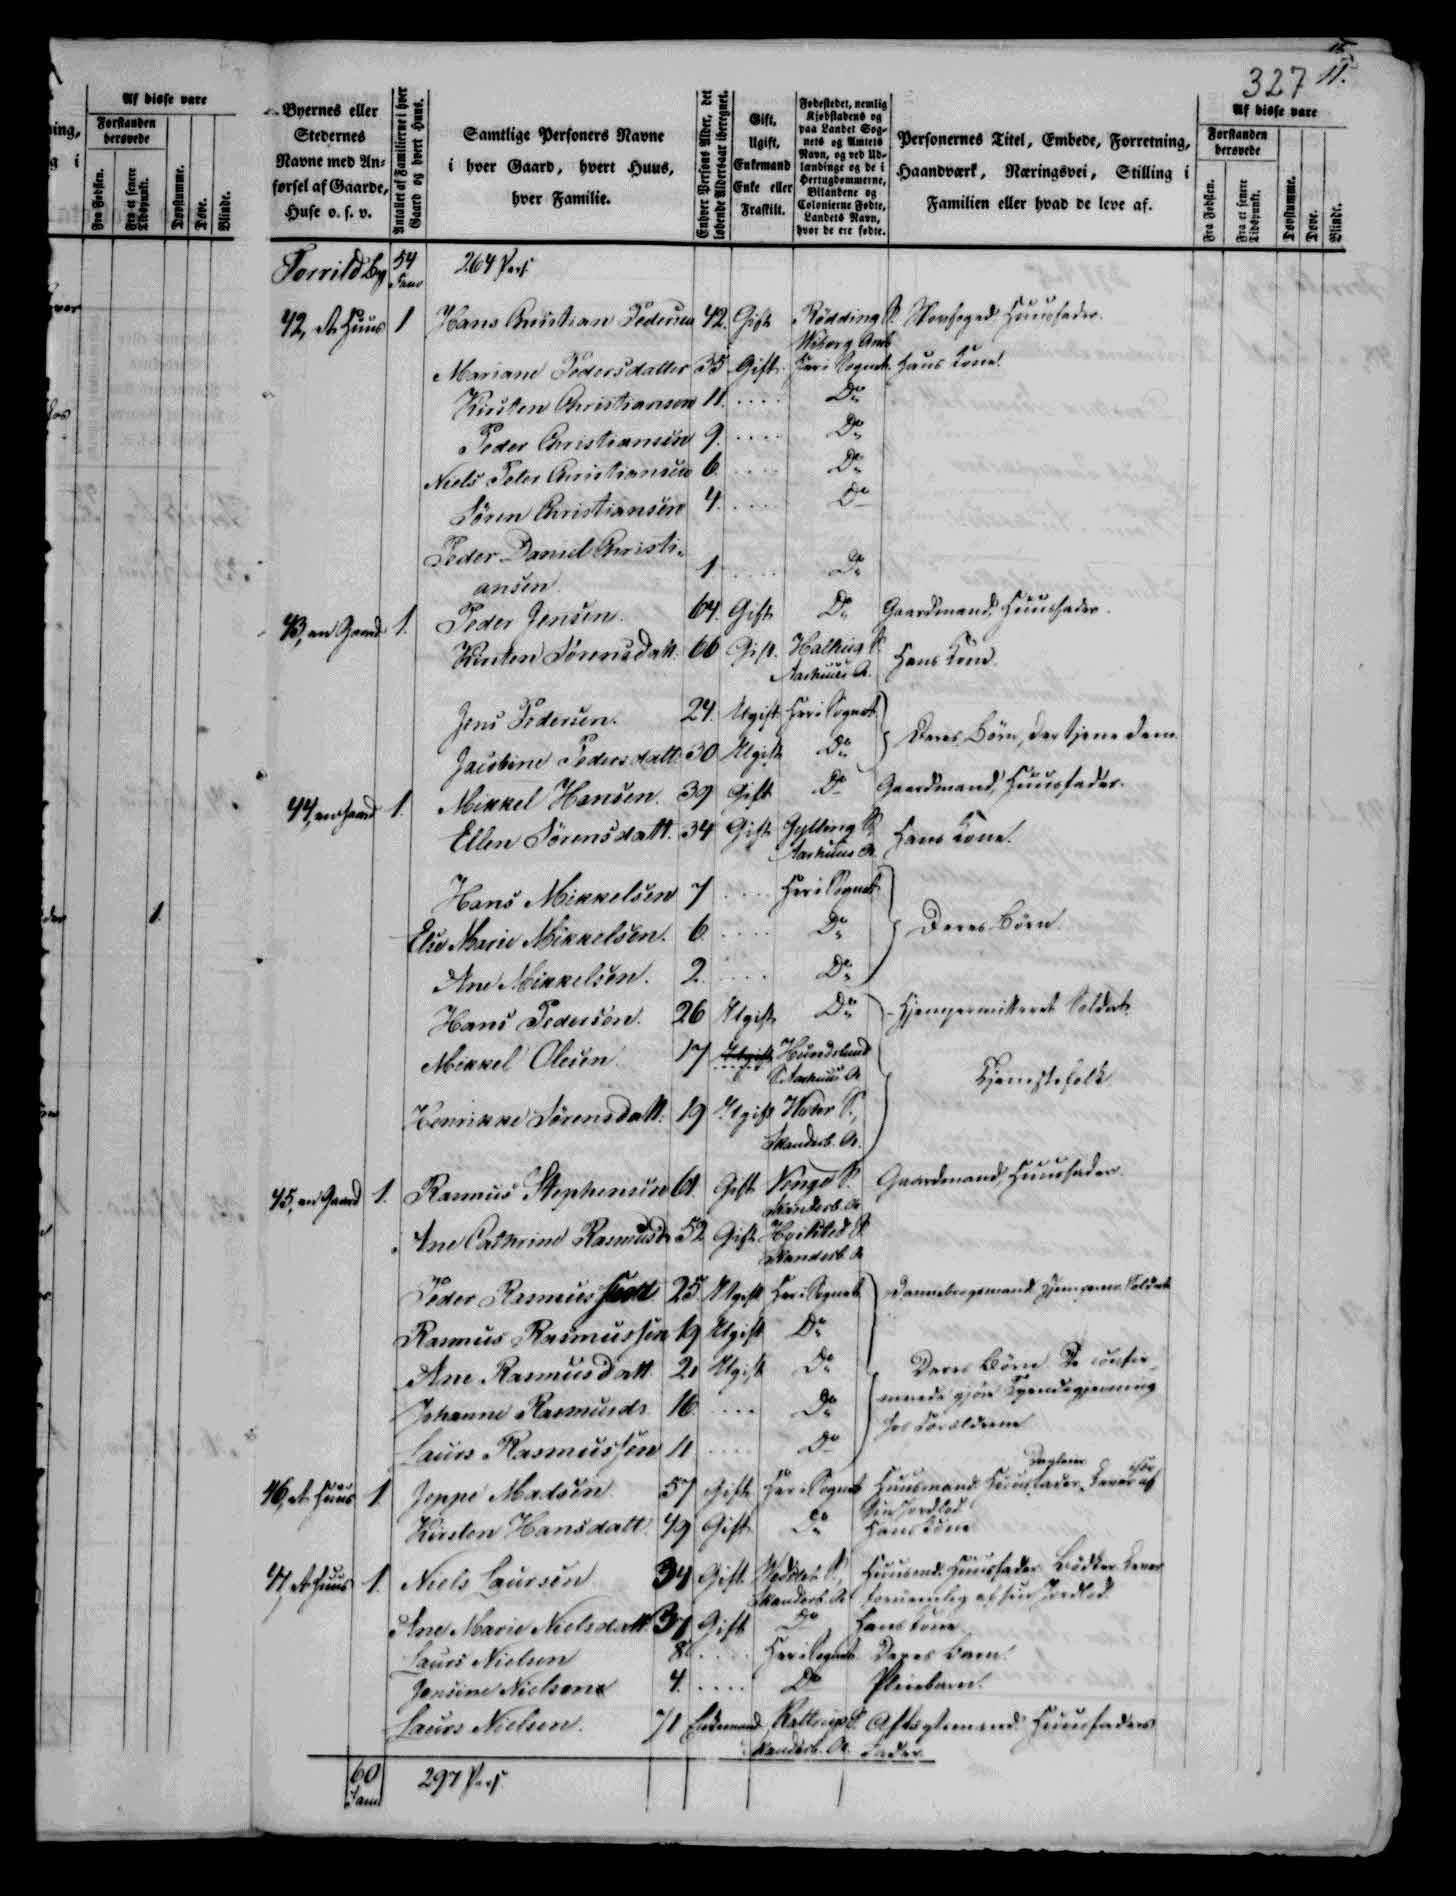 15
327 11.
Af disse vare
Forstanden berøvede
Fra Fødsen.
Fra et senere Tidspunkt.
Døvstumme.
Døve.
Blinde.
1
Byernes eller Stedernes Navne med Anførsel af Gaarde, Huse o. s. v.
Antallet af Familierne i hver Gaard og hvert Huus.
Samtlige Personers Navne i hver Gaard, hvert Huus, hver Familie.
Enhver Persons Alder, det løbende Aldersaar iberegnet.
Gift, Ugift, Enkemand Enke eller Fraskilt.
Fødestedet, nemlig Kjøbstadens og paa Landet Sognets og Amtets Navn, og ved Udlændinge og de i Hertugdømmerne, Bilandene og Colonierne Fødte, Landets Navn, hvor de ere fødte.
Personernes Titel, Embede, Forretning, Haandværk, Næringsvei, Stilling i Familien eller hvad de leve af.
Af disse vare
Forstanden berøvede
Fra Fødsen.
Fra et senere Tidspunkt.
Døvstumme.
Døve.
Blinde.
Torrild By 54 Fam 264 Pers
42, et Huus 1 Hans Christian Pedersen 42. Gift Rødding S. Wiborg Amt Huusfader.
Mariane Pedersdatter 35 Gift Her i Sognet Hans Kone.
Kirsten Christiansen 11. .... Do
Peder Christiansen 9. .... Do
Niels Peter Christiansen 6. .... Do
Søren Christiansen 4. .... Do
Peder Daniel Christi-
ansen 1 .... Do
43, en Gaard 1. Peder Jensen. 64. Gift Do Gaardmand. Huusfader.
Kirsten Sørensdatt. 66 Gift. Halling S. Aarhuus A. Hans Kone.
Jens Pedersen. 24. Ugift Her i Sognet
Jacobine Pedersdatt. 30 Ugift Do Deres Børn, der tjene dem
44, en Gaard 1. Mikkel Hansen. 39 Gift Do Gaardmand, Huusfader.
Ellen Sørensdatt. 34 Gift Gylling S. Aarhuus A. Hans Kone.
Hans Mikkelsen 7 .... Her i Sognet
Else Marie Mikkelsen. 6 .... Do Deres Børn.
Ane Mikkelsen. 2. .... Do
Hans Pedersen. 26 Ugift Do Hjempermitteret Soldat.
Mikkel Olesen 17 Ugift Hundslund S. Aarhuus A.
Tjenestefolk
Henrikke Sørensdatt. 19 Ugift S., Skanderb. A.
45, en Gaard 1. Rasmus Stephensen 61. Gift Venge S. Skanderb. A. Gaardmand, Huusfader.
Ane Cathrine Rasmusd. 52 Gift S. Skanderb. A
Peder Rasmussen 25. Ugift Her i Sognet Dannebrogsmand Soldat
Rasmus Rasmussen 19 Ugift Do
Ane Rasmusdatt. 21 Ugift Do Deres Børn. De confir-
Johanne Rasmusdr. 16 .... Do merede gjøre Tyendegjerning
Laurs Rasmussen 11 .... Do hos Forældrene
46, et Huus 1 Jeppe Madsen 57 Gift Her i Sognet Huusmand. Huusfader. Daglejer. Lever af sin Jordlod
Kirsten Hansdatt. 49 Gift Do Hans Kone
47, et Huus 1. Niels Laursen 34 Gift S, Skanderb. A Huusmd. Huusfader. Bødker. Lever fornemlig af sin Jordlod.
Ane Marie Nielsdatt. 31 Gift Do Hans Kone
Laurs Nielsen 8 .... Her i Sognet Deres Barn.
Jensine Nielsen 4. .... Do Pleiebarn.
Laurs Nielsen. 71 Enkemand S. Skanderb. A. Aftægtsmand. Huusfaders Fader
60 Fam 297 Pers.